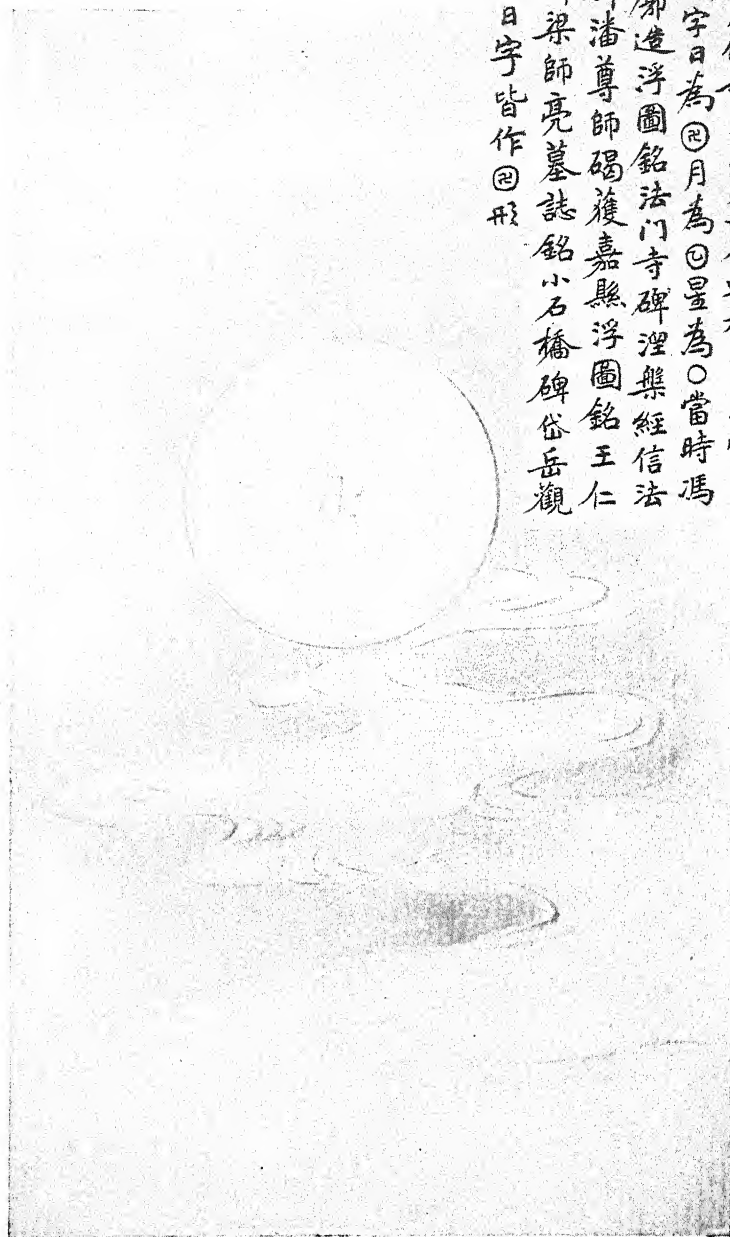 字日為卍⃝月為乙⃝星為〇當時馮
廓造浮圖銘法门寺碑湼槃經信法
潘尊師碣獲嘉縣浮圖銘王仁
梁師亮墓誌銘小石橋碑岱岳觀
日字皆作卍⃝形